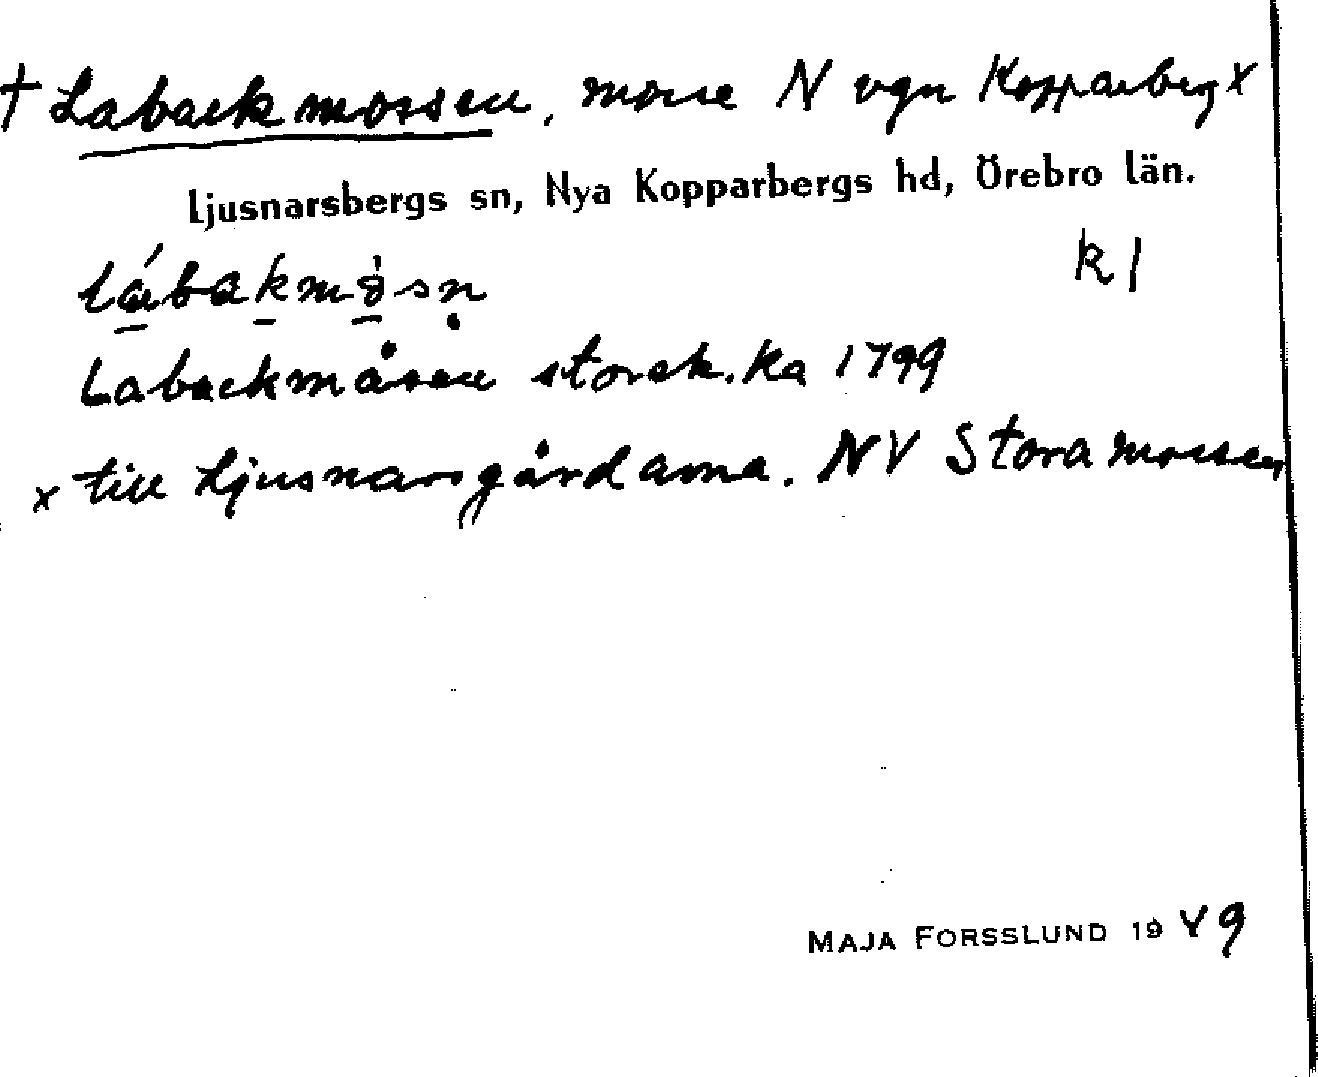 † Labackmossen, mosse N vgn Kopparberg x
Ljusnarsbergs sn, Nya Kopparbergs hd, Örebro län.
lábakmò̱sn̥ R 1
Labackmåsen storsk.ka 1799
x till Ljusnarsgårdarna. NV Stora mossen
MAJA FORSSLUND 1949